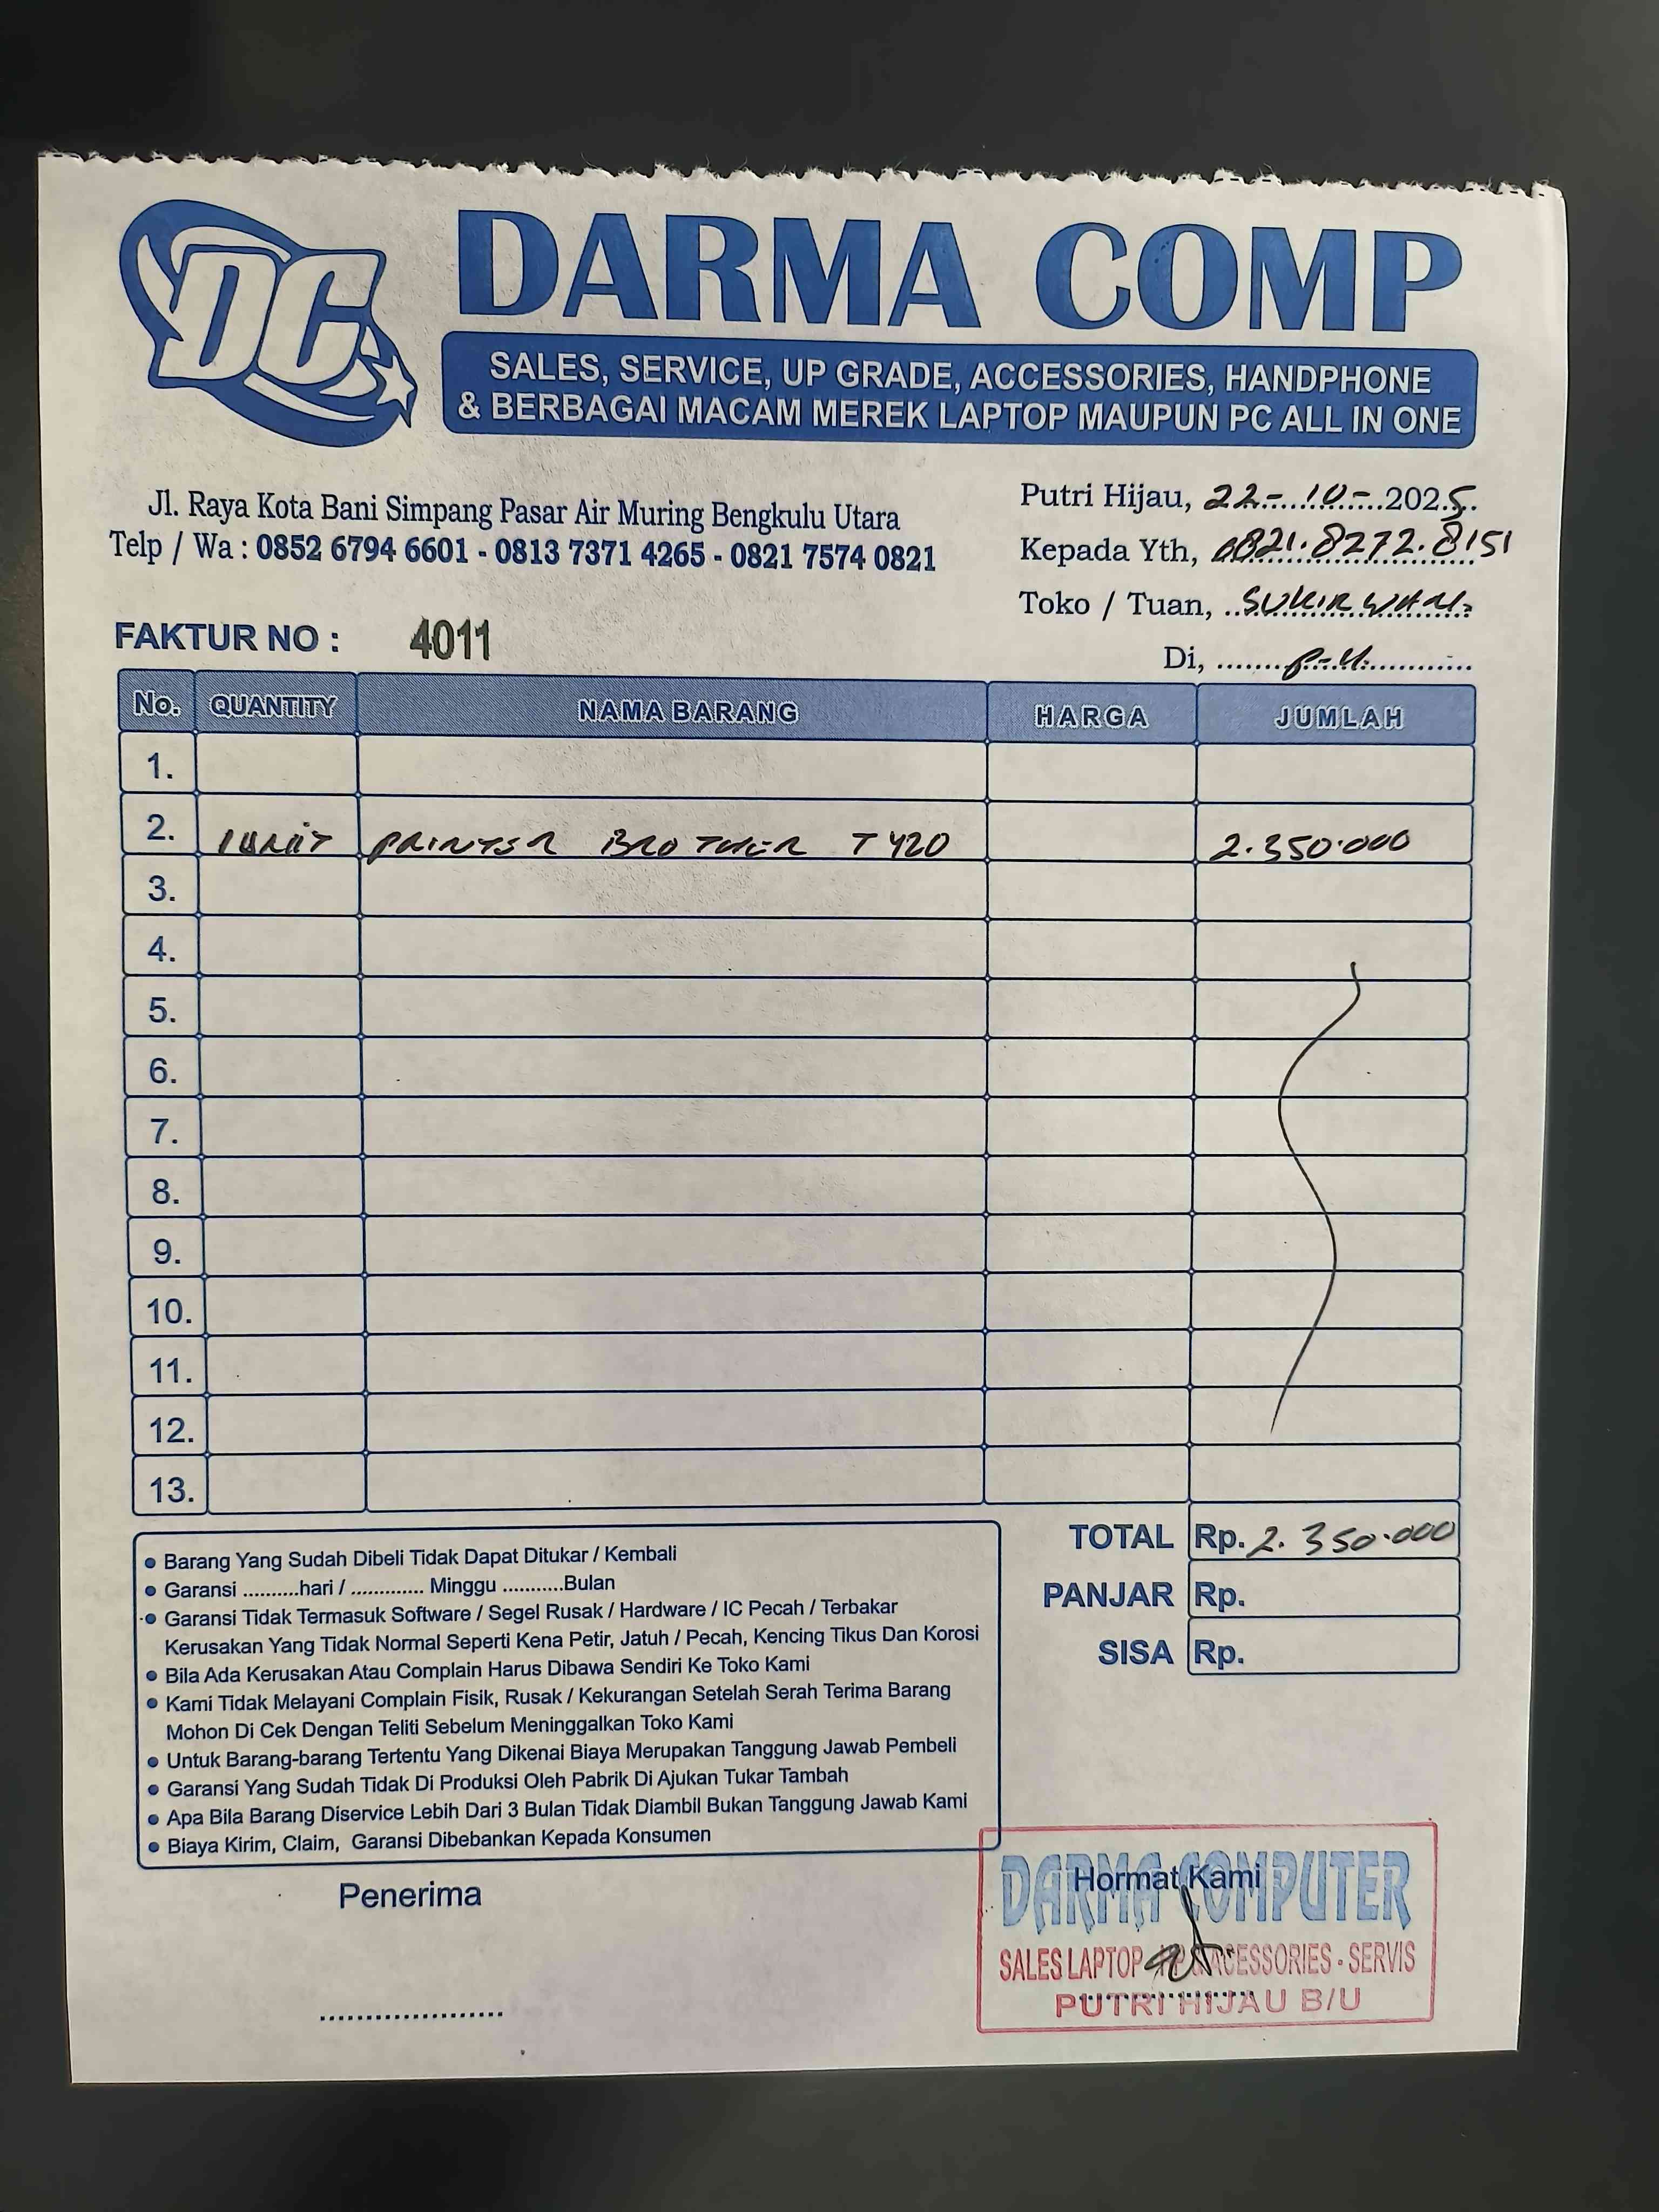 DC
DARMA COMP
SALES, SERVICE, UP GRADE, ACCESSORIES, HANDPHONE
& BERBAGAI MACAM MEREK LAPTOP MAUPUN PC ALL IN ONE
Jl. Raya Kota Bani Simpang Pasar Air Muring Bengkulu Utara
Telp / Wa : 0852 6794 6601 - 0813 7371 4265 - 0821 7574 0821
Putri Hijau, 22-10-2025.
Kepada Yth, 0821.8272.8151
Toko / Tuan, SUKIRWAN.
Di, P-H.
FAKTUR NO : 4011
No. QUANTITY NAMA BARANG HARGA JUMLAH
1.
2. 1 UNIT PRINTER BROTHER T420 2.350.000
3.
4.
5.
6.
7.
8.
9.
10.
11.
12.
13.
TOTAL Rp. 2.350.000
PANJAR Rp.
SISA Rp.
• Barang Yang Sudah Dibeli Tidak Dapat Ditukar / Kembali
• Garansi ..........hari / ............. Minggu ...........Bulan
• Garansi Tidak Termasuk Software / Segel Rusak / Hardware / IC Pecah / Terbakar
Kerusakan Yang Tidak Normal Seperti Kena Petir, Jatuh / Pecah, Kencing Tikus Dan Korosi
• Bila Ada Kerusakan Atau Complain Harus Dibawa Sendiri Ke Toko Kami
• Kami Tidak Melayani Complain Fisik, Rusak / Kekurangan Setelah Serah Terima Barang
Mohon Di Cek Dengan Teliti Sebelum Meninggalkan Toko Kami
• Untuk Barang-barang Tertentu Yang Dikenai Biaya Merupakan Tanggung Jawab Pembeli
• Garansi Yang Sudah Tidak Di Produksi Oleh Pabrik Di Ajukan Tukar Tambah
• Apa Bila Barang Diservice Lebih Dari 3 Bulan Tidak Diambil Bukan Tanggung Jawab Kami
• Biaya Kirim, Claim, Garansi Dibebankan Kepada Konsumen
Penerima
Hormat Kami
DARMA COMPUTER
SALES LAPTOP HP & ACESSORIES - SERVIS
PUTRI HIJAU B/U